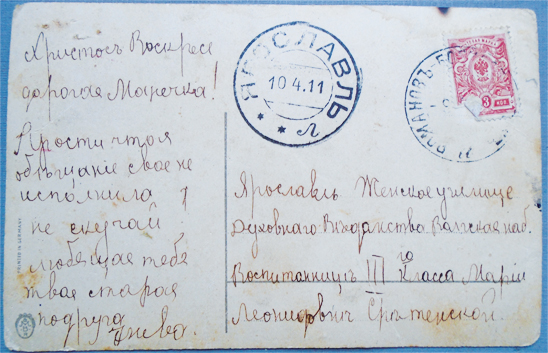 Христосъ Воскресе
дорогая Маречка!
Прости что я
обѣщаніе свое не
исполнила
не скучай
любящая тебе
твая старая
подруга
ЯРОСЛАВЛЬ
10 4.11
* * Л
РОМАНОВЪ-БО
3
КОП
Ярославль Женское училище
Духовнаго Вѣдамства Волжская наб.
Воспитанницѣ III го Класса Маріи
Леонидовнѣ Срѣтенской.
PRINTED IN GERMANY